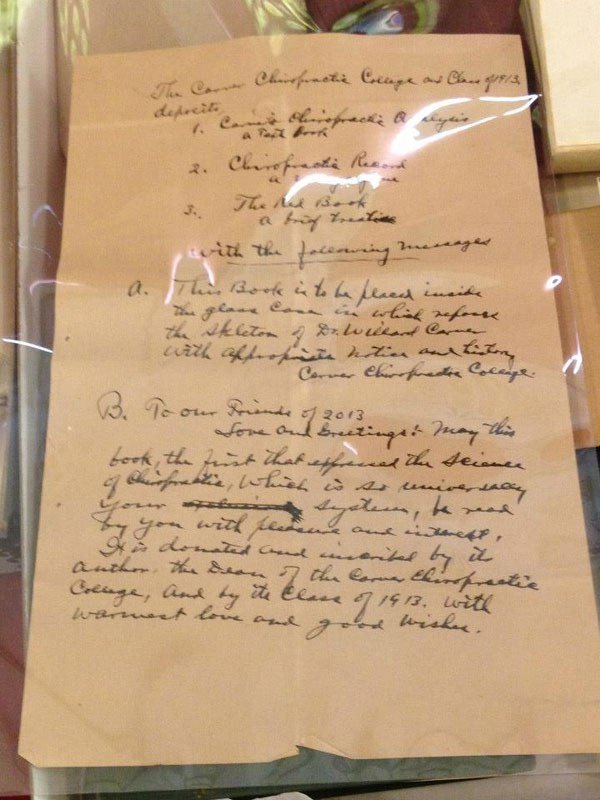 The Carver Chiropractic College and Class of 1913.
deposits
1. Carver's Chiropractic Analysis
a Text Book
2. Chiropractic Record
a
3. The Red Book
a brief treatise
with the following messages
A. This Book is to be placed inside
the glass case in which reposes
the skeleton of Dr. Willard Carver
with appropriate notice and history
Carver Chiropractic College.
B. To our Friends of 2013
Love and Greetings: May this
book, the first that expressed the science
of Chiropractic, which is so universally
your system, be read
by you with pleasure and interest.
It is donated and inscribed by its
author, the Dean of the Carver Chiropractic
College, and by its Class of 1913. with
warmest love and good wishes.